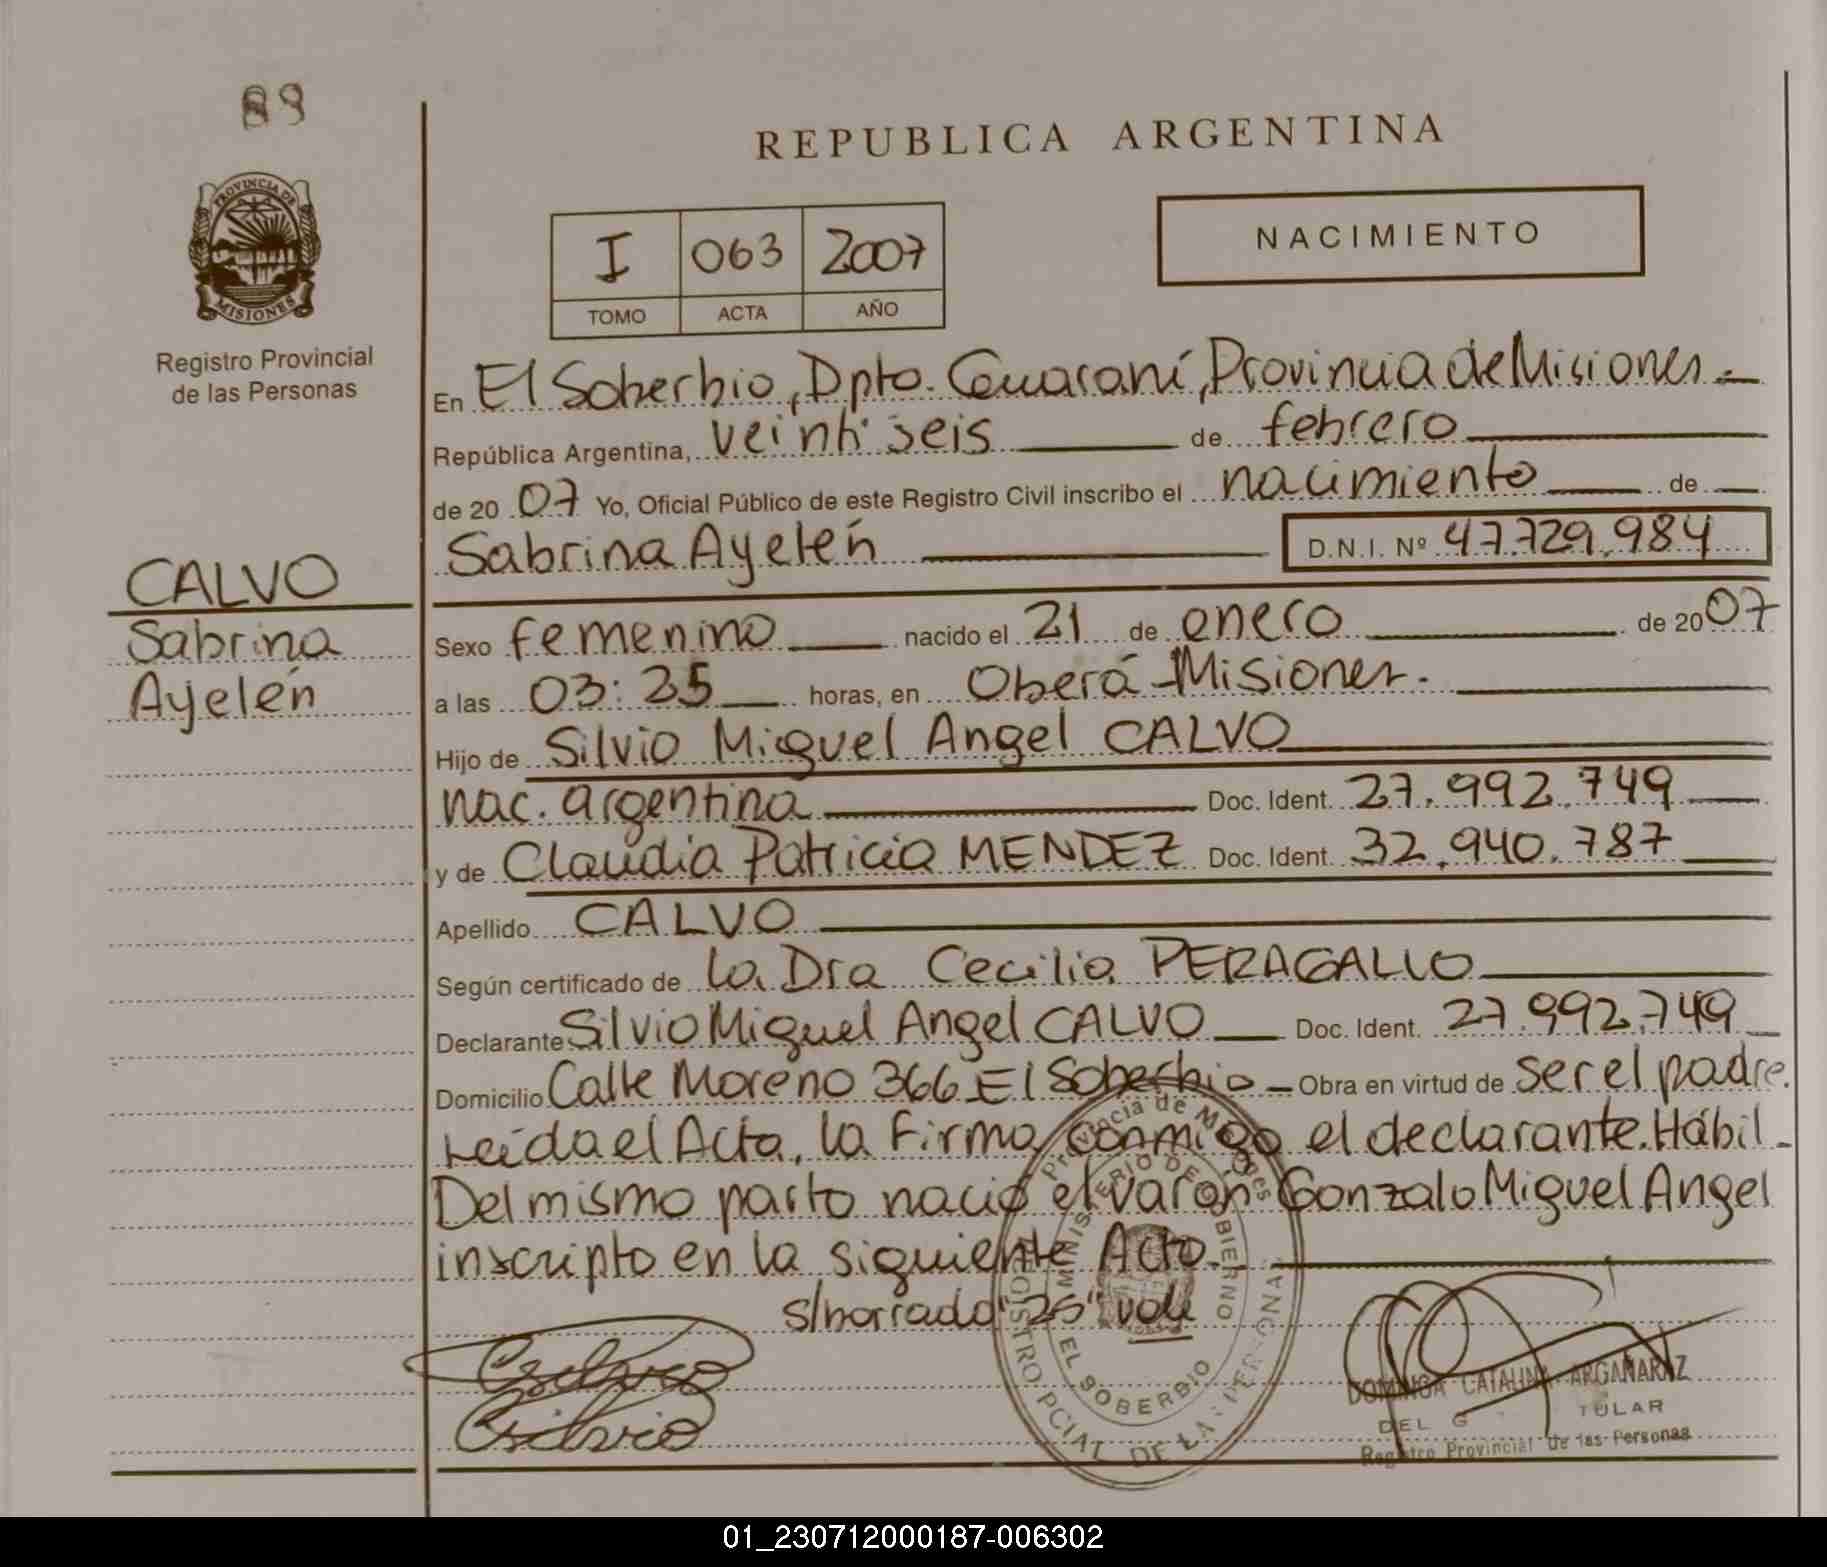 89
REPUBLICA ARGENTINA
PROVINCIA DE
MISIONES
Registro Provincial
de las Personas
I 063 2007
TOMO ACTA AÑO
NACIMIENTO
En El Soberbio, Dpto. Guaraní, Provincia de Misiones.
República Argentina, veintiseis de febrero
de 20 07 Yo, Oficial Público de este Registro Civil inscribo el nacimiento de
Sabrina Ayelén D.N.I. Nº 47.729.984
CALVO
Sabrina
Ayelén
Sexo femenino nacido el 21 de enero de 2007
a las 03:25 horas, en Oberá - Misiones.
Hijo de Silvio Miguel Angel CALVO
nac. argentina Doc. Ident. 27.992.749
y de Claudia Patricia MENDEZ Doc. Ident. 32.940.787
Apellido CALVO
Según certificado de la Dra Cecilia PERAGALLO
Declarante Silvio Miguel Angel CALVO Doc. Ident. 27.992.749
Domicilio Calle Moreno 366 El Soberbio - Obra en virtud de ser el padre.
Leída el Acta, la firma conmigo el declarante. Hábil -
Del mismo parto nació el varón Gonzalo Miguel Angel
inscripto en la siguiente Acta.
s/borrado "25" vale
Provincia de Misiones
MINISTERIO DE GOBIERNO
EL SOBERBIO
REGISTRO PCIAL DE LAS PERSONAS
DOMINGA CATALINA ARGAÑARAZ
Registro Provincial de las Personas
01_230712000187-006302